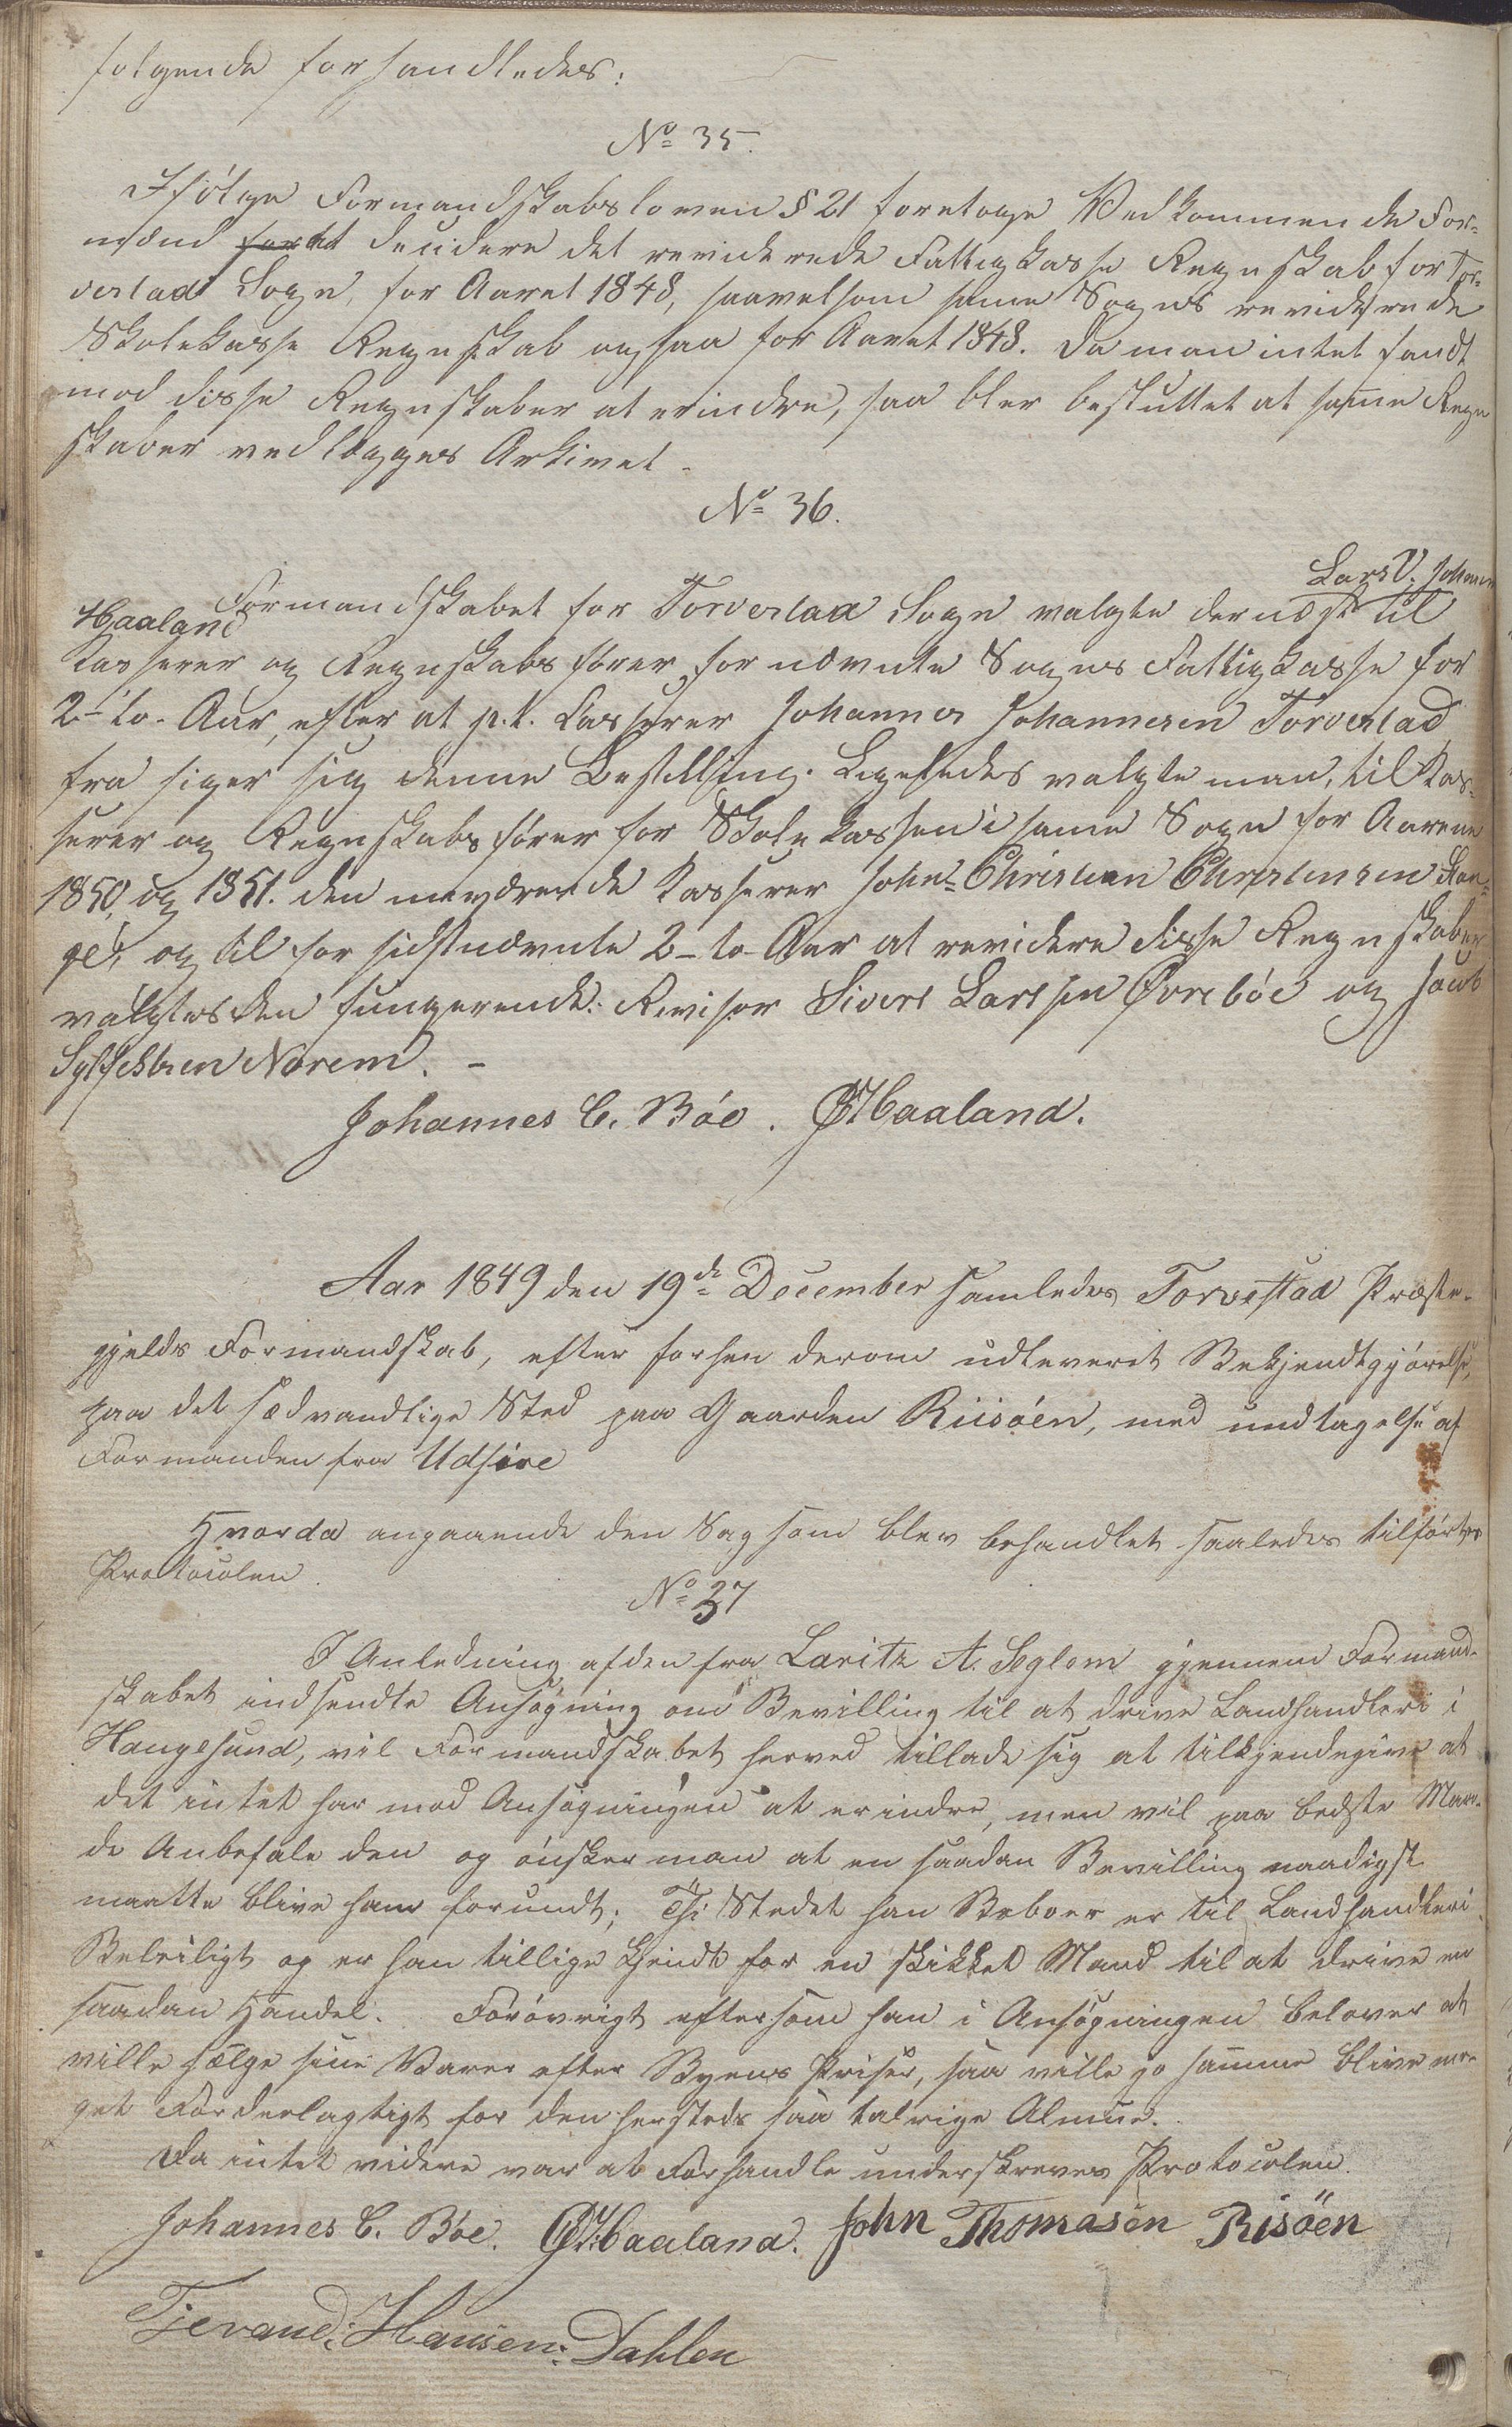 følgende forhandledes:
No 35.
Ifølge Formandskabsloven § 21 foretoge Vedkommende For-
mænd at decidere det reviderede Fattigkasse Regnskab for Tor-
vestad Sogn, for Aaret 1848, saavelsom same Sogns reviderede
Skolekasse Regnskab ogsaa for Aaret 1848. Da man intet fandt
mod disse Regnskaber at erindre, saa blev besluttet at same Regn
skaber vedlægges Arkivet.
No 36.
Lars V. Johann
Formandskabet for Torvestad Sogn valgte dernæst til
Haaland
Kasserer og Regnskabsfører for nævnte Sogns Fattigkasse for
2-to- Aar, efter at p.t. Casserer Johannes Johannesen Torvestad
fra siger sig denne Bestilling. Ligeledes valgte man, til Kas-
serer og Regnskabsfører for Skolekassen i same Sogn for Aarene
1850, og 1851. den nuværende Kasserer John Christian Christensen Stan-
ge, og til for sidstnævnte 2-to-Aar at revidere disse Regnskaber
valgtes den fungerende: Revisor Sivert Larssen Øvrebøe og
Sylfestsen Norem. -
Johannes C. Bøe. Haaland.
Aar 1849 den 19de December samledes Torvestad Præste-
gjelds Formandskab, efter forhen derom udleveret Bekjendtgjørelse,
paa det sædvandlige Sted paa Gaarden Riisøen, med undtagelse af
Formanden fra Udsire
Hvorda angaaende den Sag som blev behandlet saaledes tilførtes
Protocolen.
No 37
I Anledning af den fra Laritz A. Seglem gjennem Formand-
skabet indsendte Ansøgning om Bevilling til at drive Landhandleri i
Haugesund, vil Formandskabet herved tillade sig at tilkjendegive at
det intet har mod Ansøgningen at erindre, men vil paa bedste Maa-
de Anbefale den og ønsker man at en saadan Bevilling naadigst
maatte blive ham forundt; Thi Stedet han Beboer er til Landhandleri
Beleiligt og er han tillige kjendt for en skikket Mand til at drive en
saadan Handel. Forøvrigt eftersom han i Ansøgningen belover at
ville sælge sine Varer efter Byens Priser, saa ville jo samme blive me-
get Fordelagtigt for den hersteds saa talrige Almue.
Da intet videre var at Forhandle underskreves Protocolen.
Johannes C. Bøe. Haaland. John Thomasen Risøen
Tjerand: Hansen: Dahlen